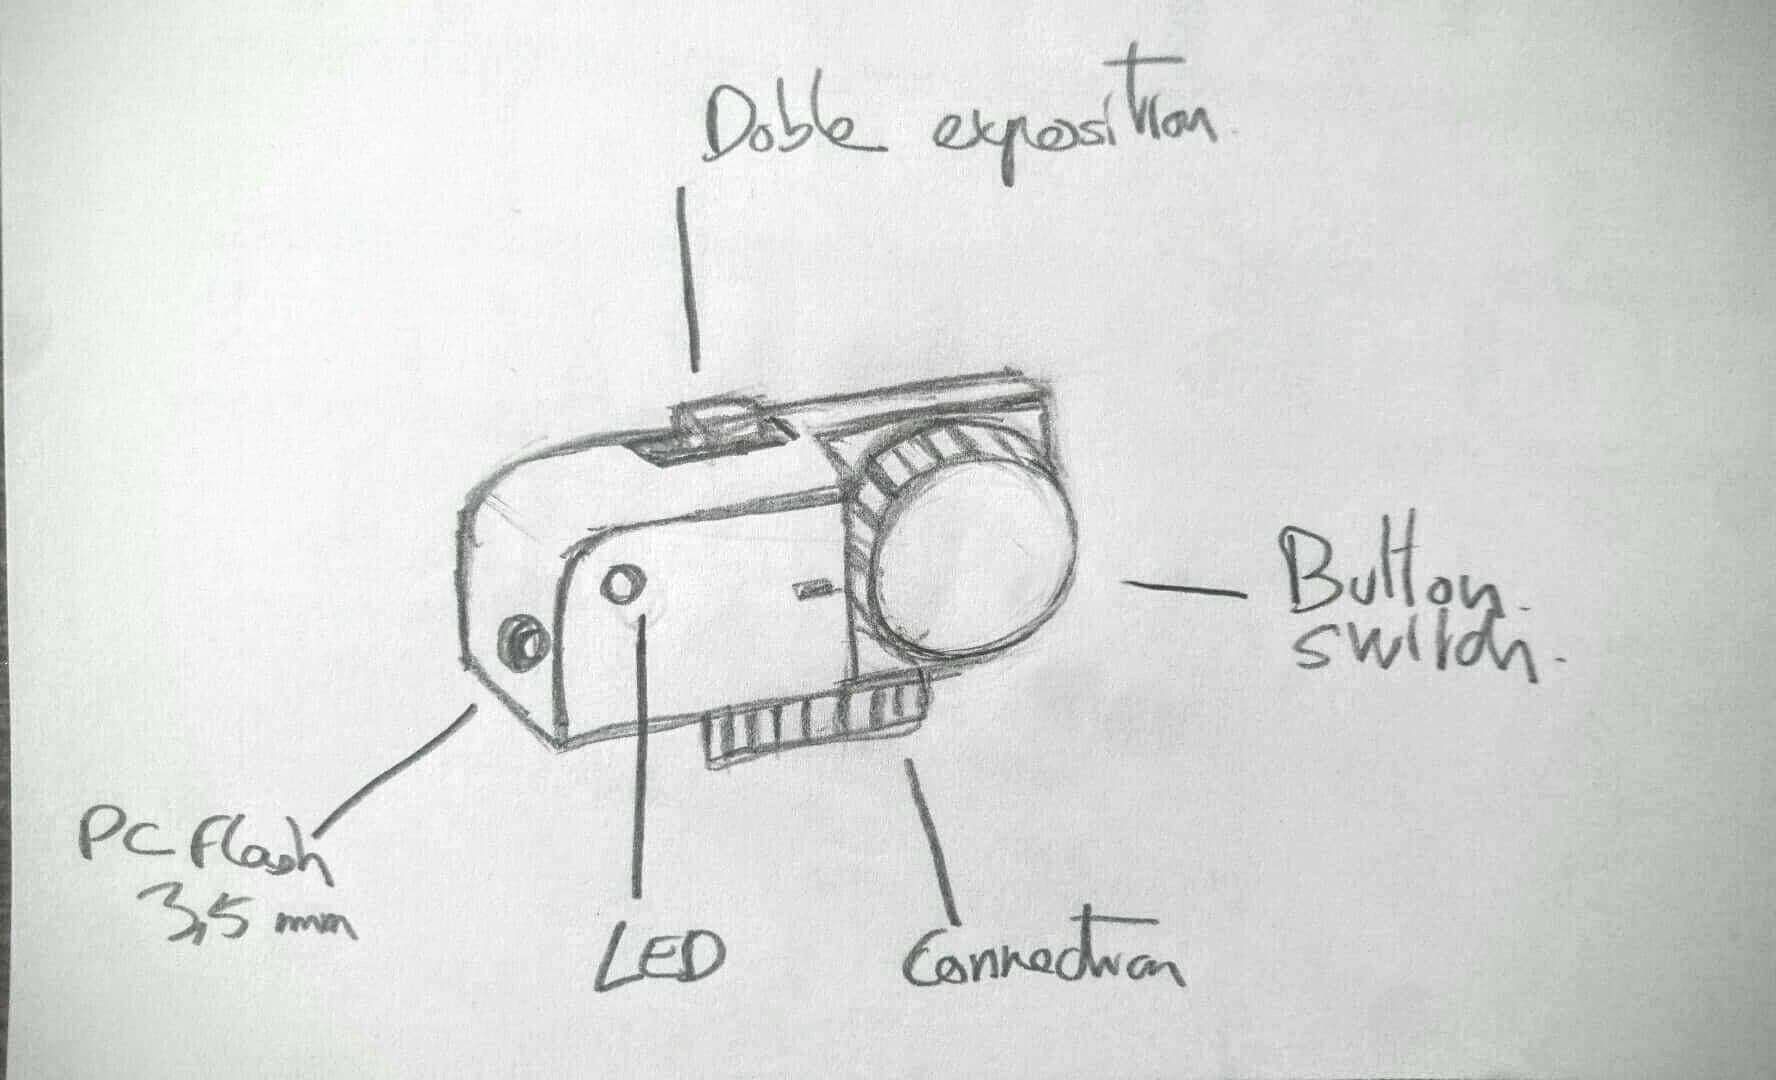 Doble exposition
Button
switch.
PC flash
3,5 mm
LED
Connection